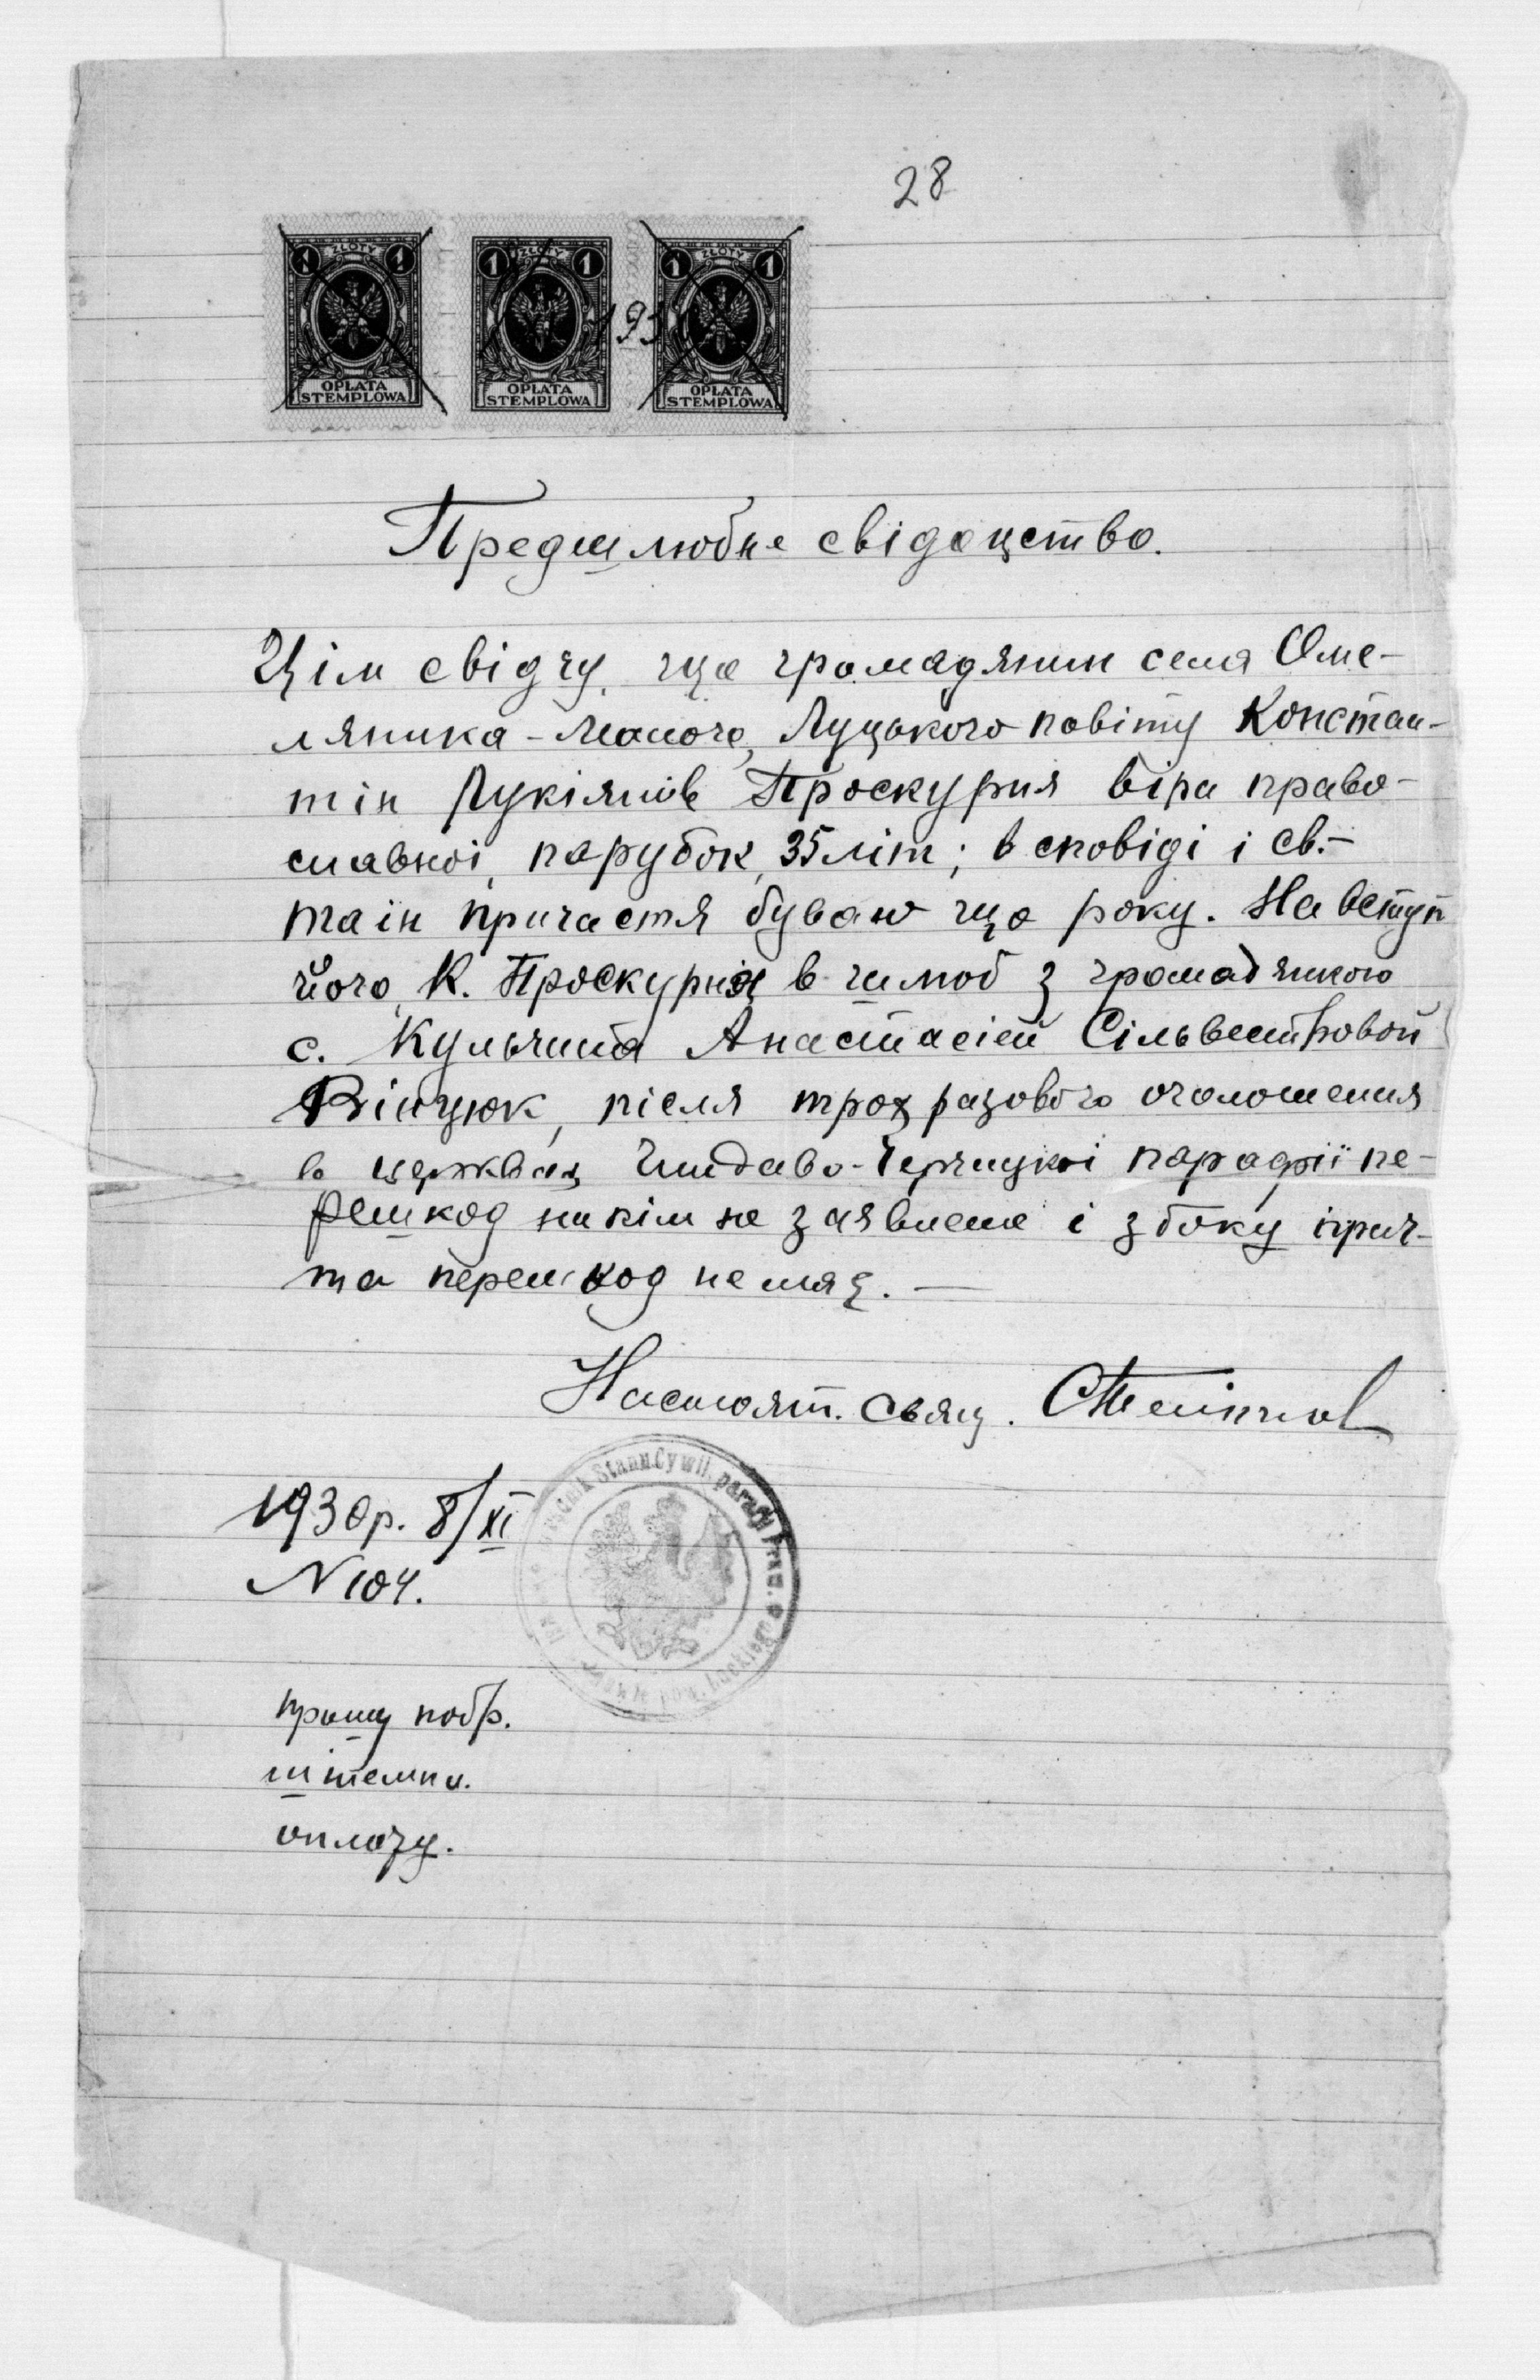 28
1 ZŁOTY 1 1 ZŁOTY 1 1 ZŁOTY 1
193
OPŁATA STEMPLOWA OPŁATA STEMPLOWA OPŁATA STEMPLOWA
Предшлюбне свідоцтво.
Цім свідчу, що громадянин села Оме-
ляника-Малого, Луцького повіту Констан-
тін Лукіянів Проскурня віри право-
славної, парубок, 35 літ; в сповіді і св.-
таін причастя буваю що року. На вступ
його, К. Проскурня в шлюб з громадянкою
с. Кульчина Анастасіей Сільвестровой
Вінцюк, після трохразового оголошення
в церквах парафії пе-
решкод ніким не заявлене і з боку прич-
та перешкод немає. —
Настоят. свящ.
1930р. 8/XI
N 104.
Stanu Cywil. parafji Praw.
pow. Łuckiego
прошу побр.
штемпл.
оплату.